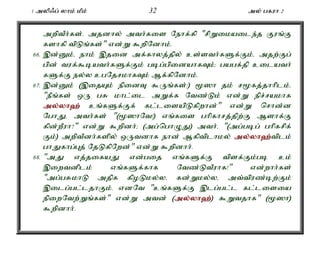 1 அலிஃப் லாம் மீம் 32 அல் பகரா 2
அறிவீர்கள். அதனால் அவர்களை நோக்கி "சிறுமையடைந்த குரங்கு
களாகி விடுங்கள்" என்று கூறினோம்.
66. இன்னும், நாம் இதனை அக்காலத்தில் உள்ளவர்களுக்கும், அதற்குப்
பின் வரக்கூடியவர்களுக்கும் படிப்பினையாகவும்; பயபக்தி உடையவர்
களுக்கு நல்ல உபதேசமாகவும் ஆக்கினோம்.
67. இன்னும் (இதையும் நினைவு கூருங்கள்:) மூஸா தம் சமூகத்தாரிடம்,
"நீங்கள் ஒரு பசு மாட்டை அறுக்க வேண்டும் என்று நிச்சயமாக
அல்லாஹ் உங்களுக்குக் கட்டளையிடுகிறான்" என்று சொன்ன
போது, அவர்கள் "(மூஸாவே!) எங்களை பரிகாசத்திற்கு ஆளாக்கு
கின்றீரா?" என்று கூறினர்; (அப்பொழுது) அவர், "(அப்படிப் பரிகசிக்
கும்) அறிவீனர்களில் ஒருவனாக நான் ஆகிவிடாமல் அல்லாஹ்விடம்
பாதுகாப்புத் தேடுகிறேன்" என்று கூறினார்.
68. "அது எத்தகையது என்பதை எங்களுக்கு விளக்கும்படி உம்
இறைவனிடம் எங்களுக்காக வேண்டுவீராக!" என்றார்கள்
"அப்பசுமாடு அதிக கிழடுமல்ல, கன்றுமல்ல, அவ்விரண்டிற்கும்
இடைப்பட்டதாகும். எனவே "உங்களுக்கு இடப்பட்ட கட்டளையை
நிறைவேற்றுங்கள்" என்று அவன் (அல்லாஹ்) கூறுவதாக" (மூஸா)
கூறினார்.